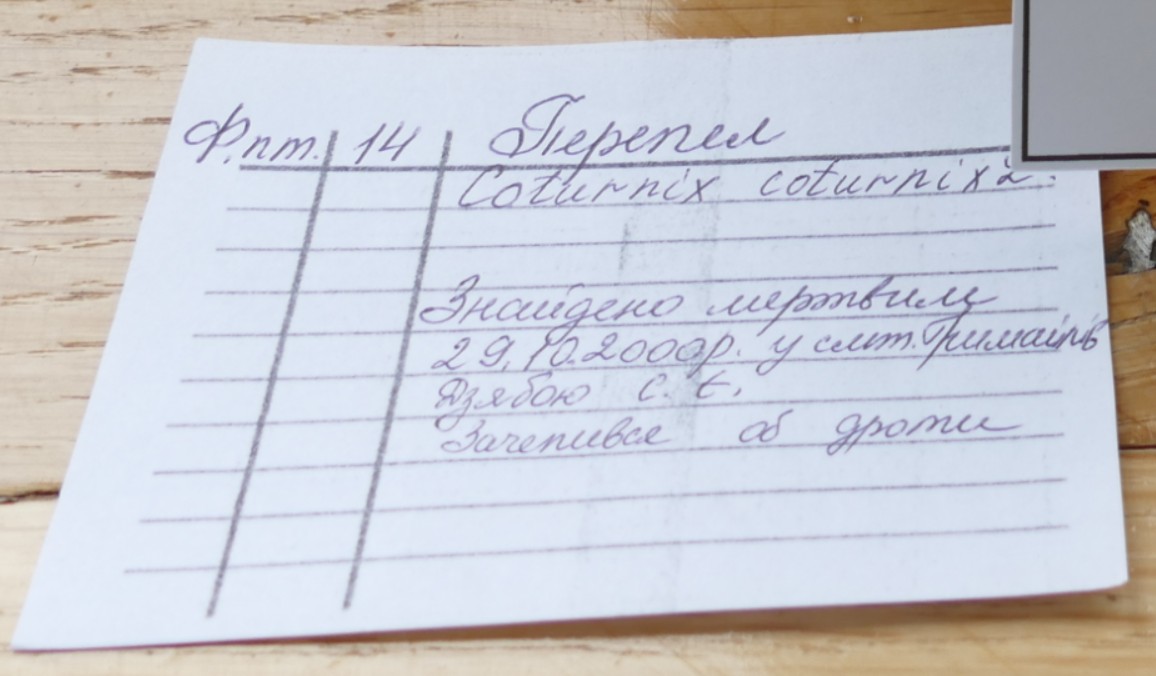 Ф.пт. 14 Перепел
Coturnix coturnix L.
Знайдено мертвим
29.10.2000р. у смт. Гримайлів
Дзябою С. Є.
Зачепився об дроти